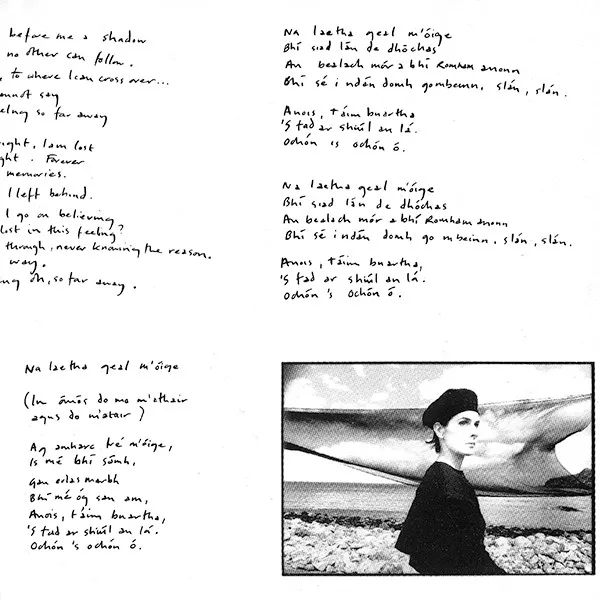 before me a shadow
no other can follow.
to where I can cross over...
cannot say
so far away
I am lost
Forever
memories.
I left behind.
I go on believing
lost in this feeling?
through, never knowing the reason.
way.
oh, so far away.
Na laetha geal m'óige
Bhí siad lán de dhóchas
An bealach mór a bhí Romham anonn
Bhí sé i ndán domh gombeinn, slán, slán.
Anois, táim buartha
'S fad ar shiúl an lá.
Ochón is ochón ó.
Na laetha geal m'óige
Bhí siad lán de dhóchas
An bealach mór a bhí Romham anonn
Bhí sé i ndán domh go mbeinn, slán, slán.
Anois, táim buartha,
'S fad ar shiúl an lá.
Ochón 's ochón ó.
Na laetha geal m'óige
(In ómós do mo m'athair
agus do m'atair)
Ag amharc tré m'óige,
Is mé bhí sámh,
Gan eolas marbh
Bhí mé óg san am,
Anois, táim buartha,
'S fad ar shiúl an lá.
Ochón 's ochón ó.